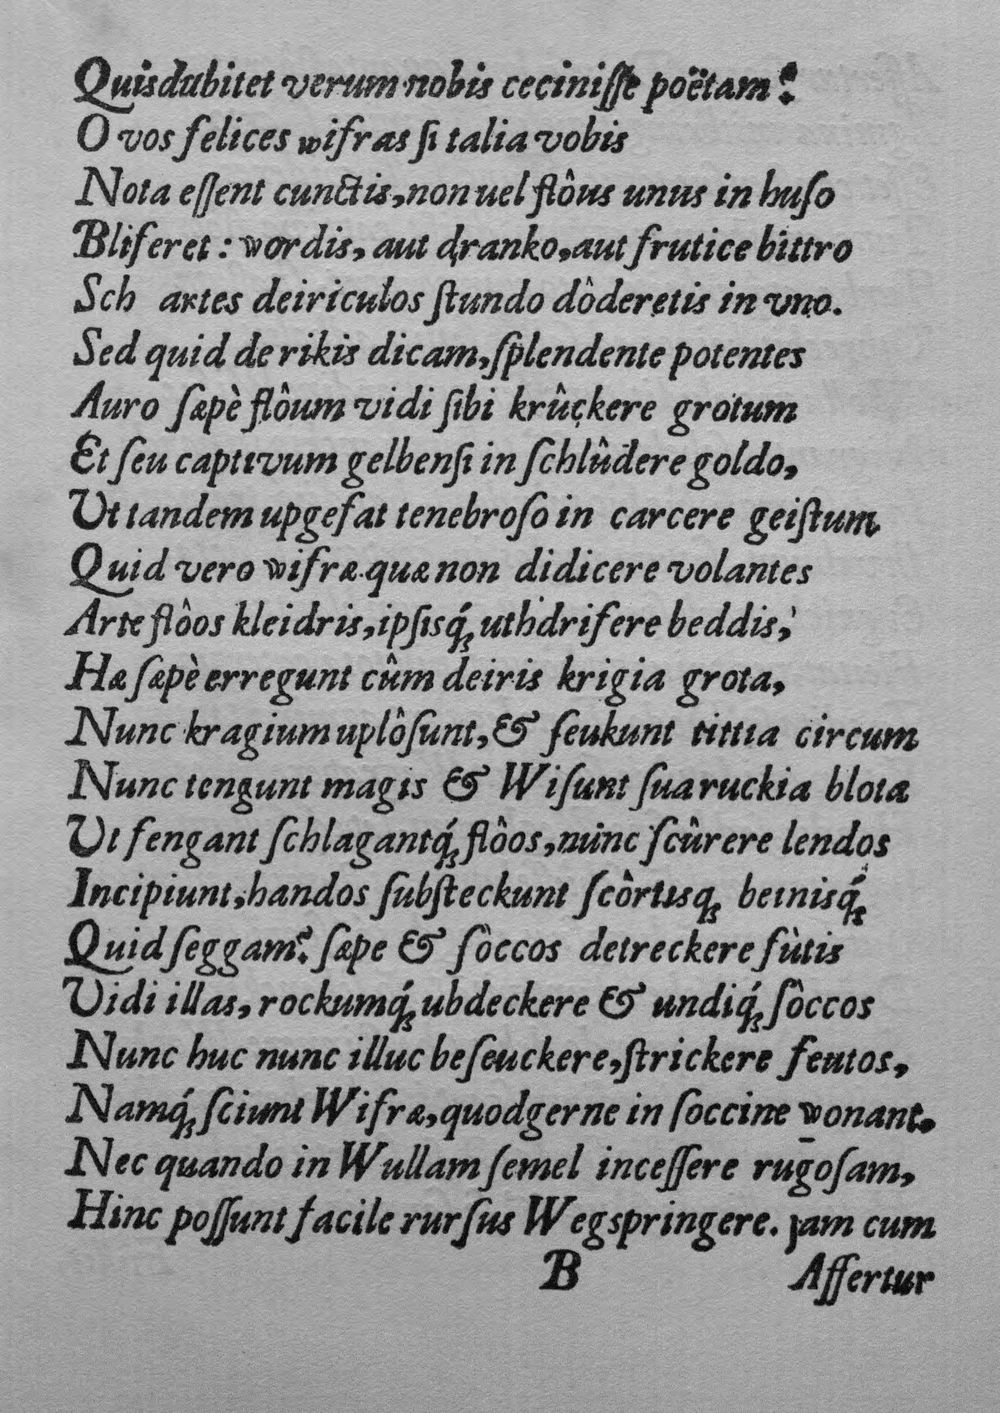 Quisdubitet verum nobis ceciniſſe poëtam?
O vos felices wifras ſi talia vobis
Nota eſſent cunctis, non uel flôus unus in huſo
Bliferet: wordis, aut dranko, aut frutice bittro
Sch artes deiriculos ſtundo dôderetis in vno.
Sed quid de rikis dicam, ſplendente potentes
Auro ſæpè flôum vidi ſibi krûckere grotum
Et ſeu captivum gelbenſi in ſchlûdere goldo,
Ut tandem upgefat tenebroſo in carcere geiſtum
Quid vero wifræ quæ non didicere volantes
Arte flôos kleidris, ipſisq́; uthdrifere beddis,
Hæ ſæpè erregunt cûm deiris krigia grota,
Nunc kragium uplôſunt, & ſeukunt tittia circum
Nunc tengunt magis & Wiſunt ſua ruckia blota
Ut fengant ſchlagantq́; flôos, nunc ſcûrere lendos
Incipiunt, handos ſubſteckunt ſcôrtisq; beinisq́;
Quid ſeggam? ſæpe & ſòccos detreckere fùtis
Vidi illas, rockumq́; ubdeckere & undiq́; ſôccos
Nunc huc nunc illuc beſeuckere, ſtrickere feutos,
Namq́; ſciunt Wifræ, quodgerne in ſoccine wonant.
Nec quando in Wullam ſemel inceſſere rugoſam,
Hinc poſſunt facile rurſus Wegspringere. jam cum
B Affertur